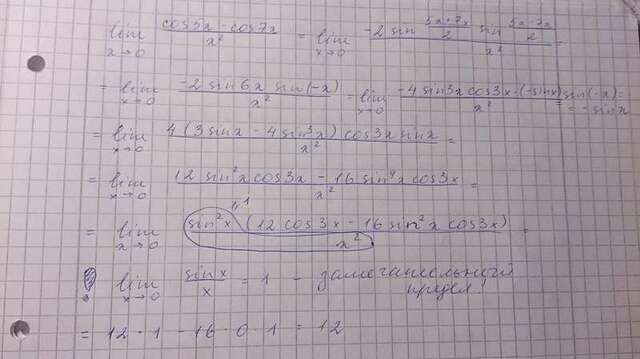 lim x→0 (cos5x - cos7x)/x² = lim x→0 (-2 sin (5x+7x)/2 sin (5x-7x)/2)/x² =
= lim x→0 (-2 sin6x sin(-x))/x² = lim x→0 (-4 sin3x cos3x·(-sinx))/x² = sin(-x) = = -sinx
= lim x→0 (4(3sinx - 4sin³x) cos3x sinx)/x² =
= lim x→0 (12 sin²x cos3x - 16 sin⁴x cos3x)/x² =
= lim x→0 (sin²x (12 cos3x - 16 sin²x cos3x))/x² = " 1
! lim x→0 sinx/x = 1 - замечательный предел.
= 12·1 - 16·0·1 = 12